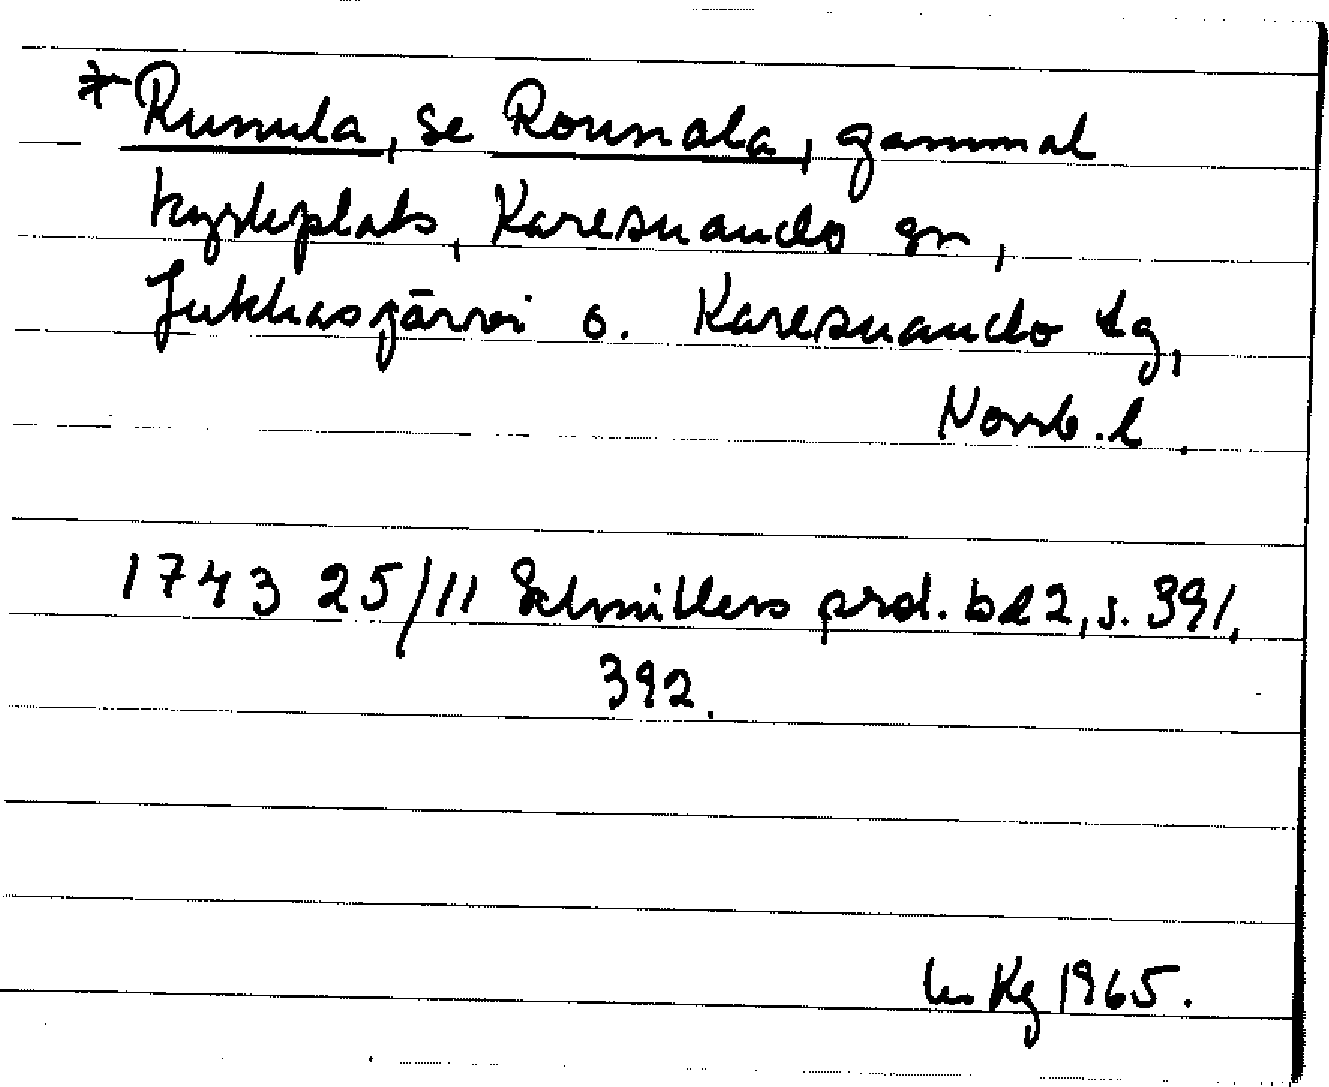 *Runula, se Rounala, gammal
kyrkplats, Karesuando sn,
Jukkasjärvi o. Karesuando tg,
Norrb. l.
1743 25/11 Schnitlers prot. bd 2, s. 391,
392.
Kg 1965.